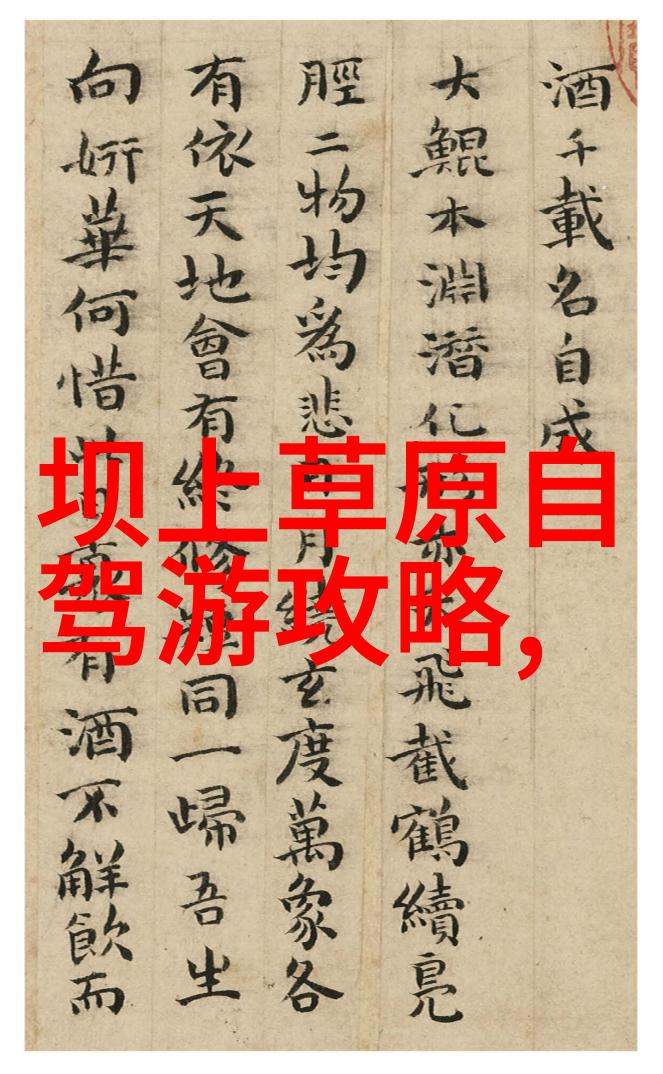 酒千載名自成
大鯤本淵潛化亦飛截鶴續鳧
脛二物均爲悲日月繞玄度萬象各
有依天地會有終修短同一歸吾生
向妍華何惜此日有酒不觧飲而
坝上草原自
驾游攻略,